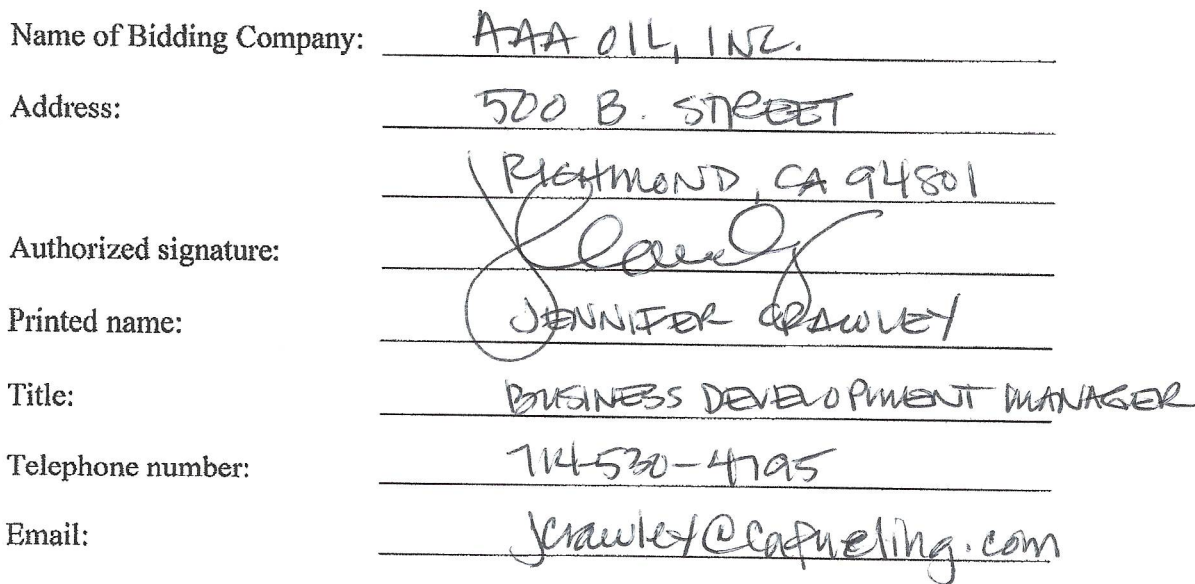 Name of Bidding Company: AAA OIL, INC.
Address: 500 B. STREET
RICHMOND, CA 94801
Authorized signature: JCrawley
Printed name: JENNIFER CRAWLEY
Title: BUSINESS DEVELOPMENT MANAGER
Telephone number: 714-530-4795
Email: jcrawley@cafueling.com